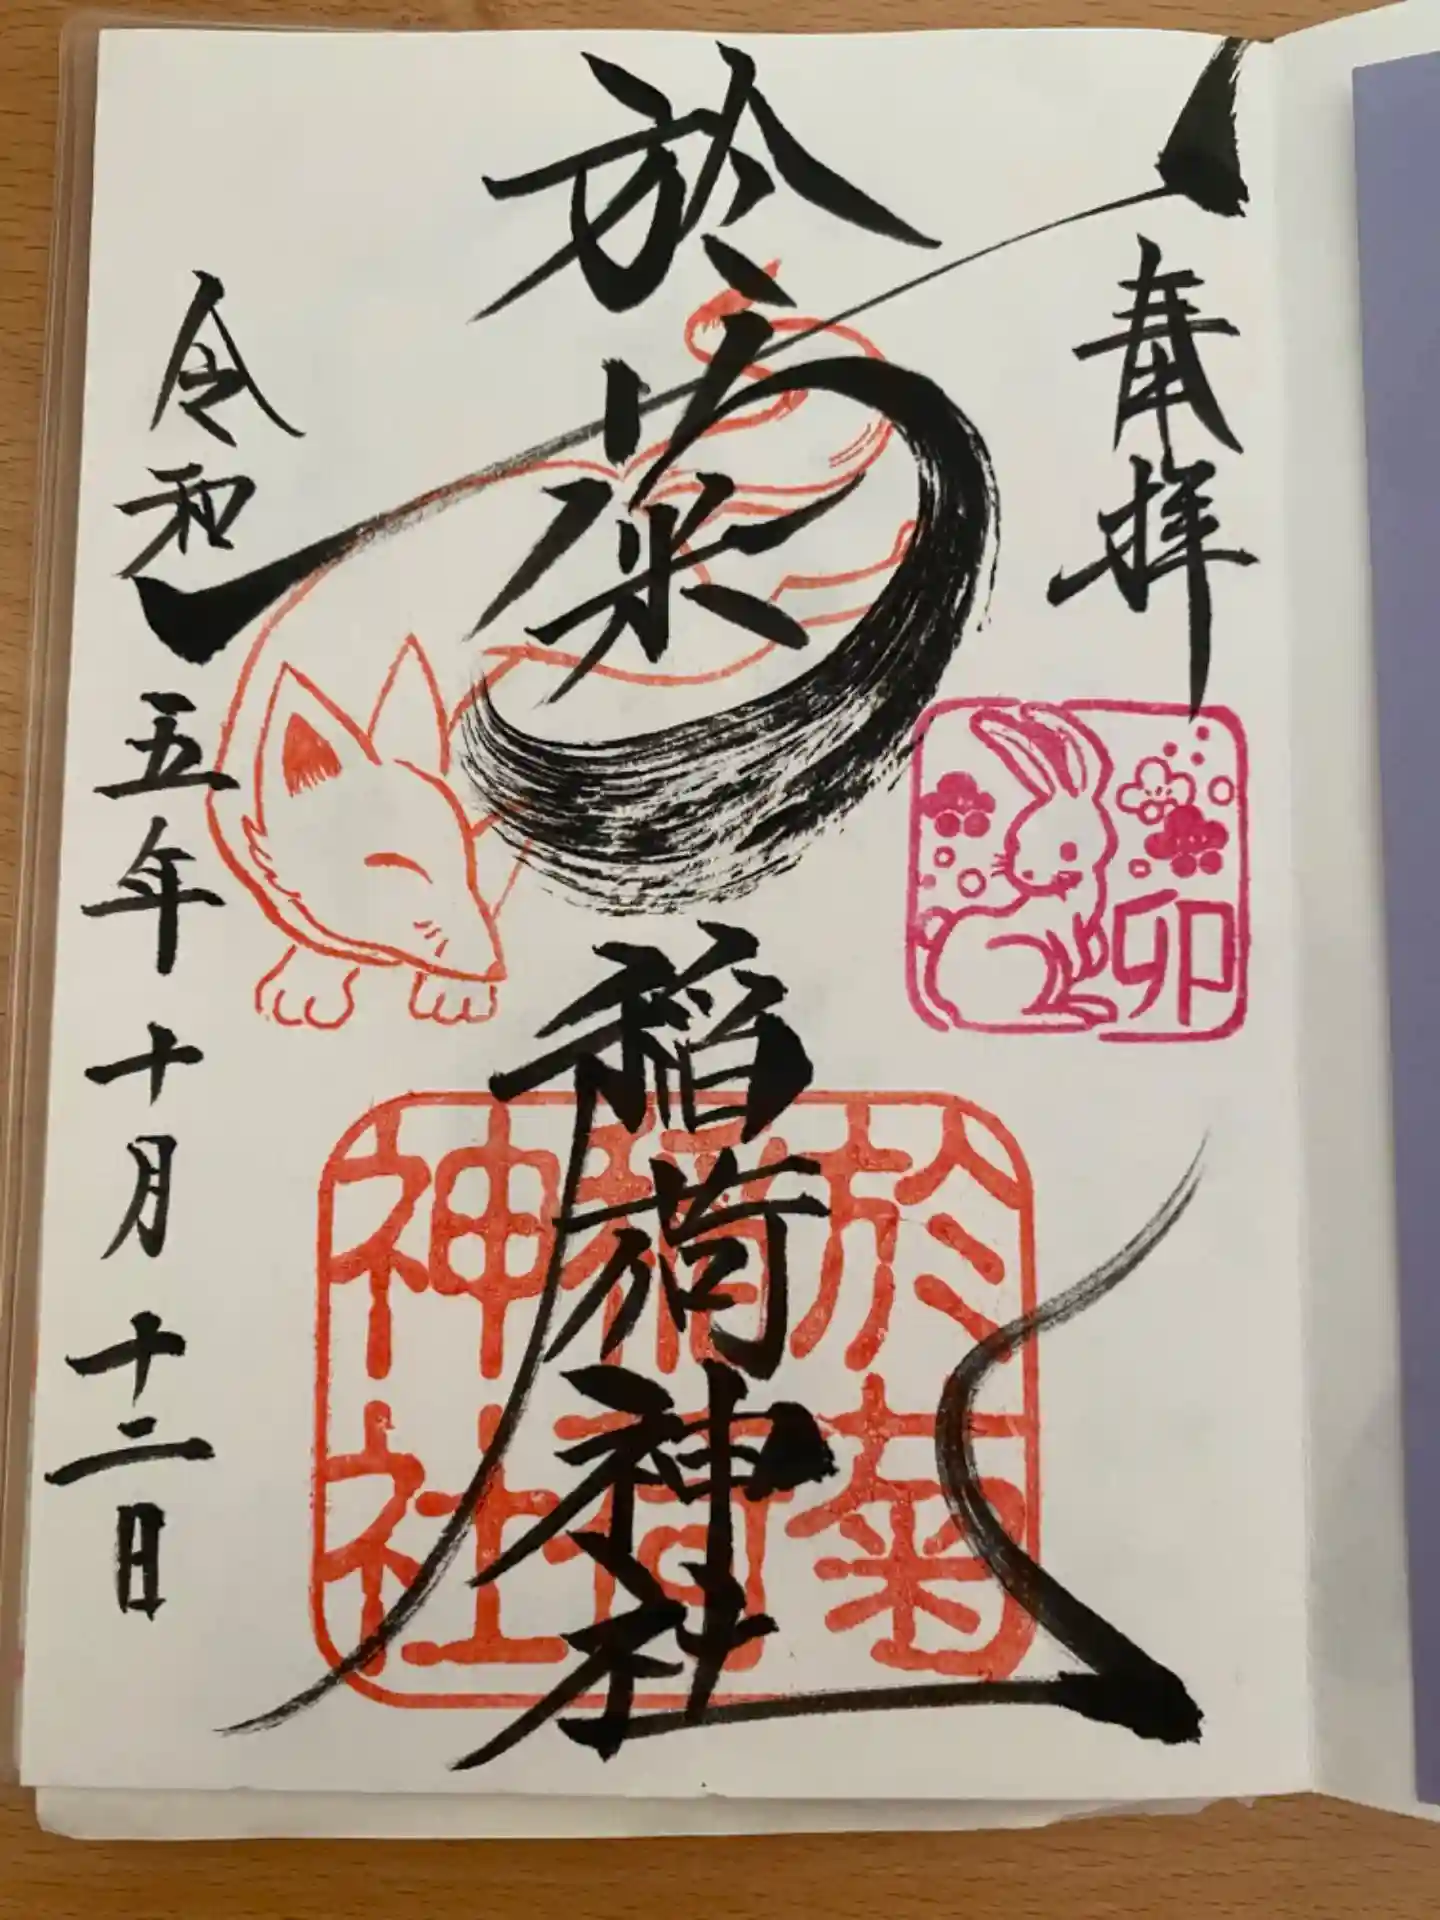 奉拝
卯
於菊稲荷神社
於菊
稲荷
神社
令和五年十月十二日